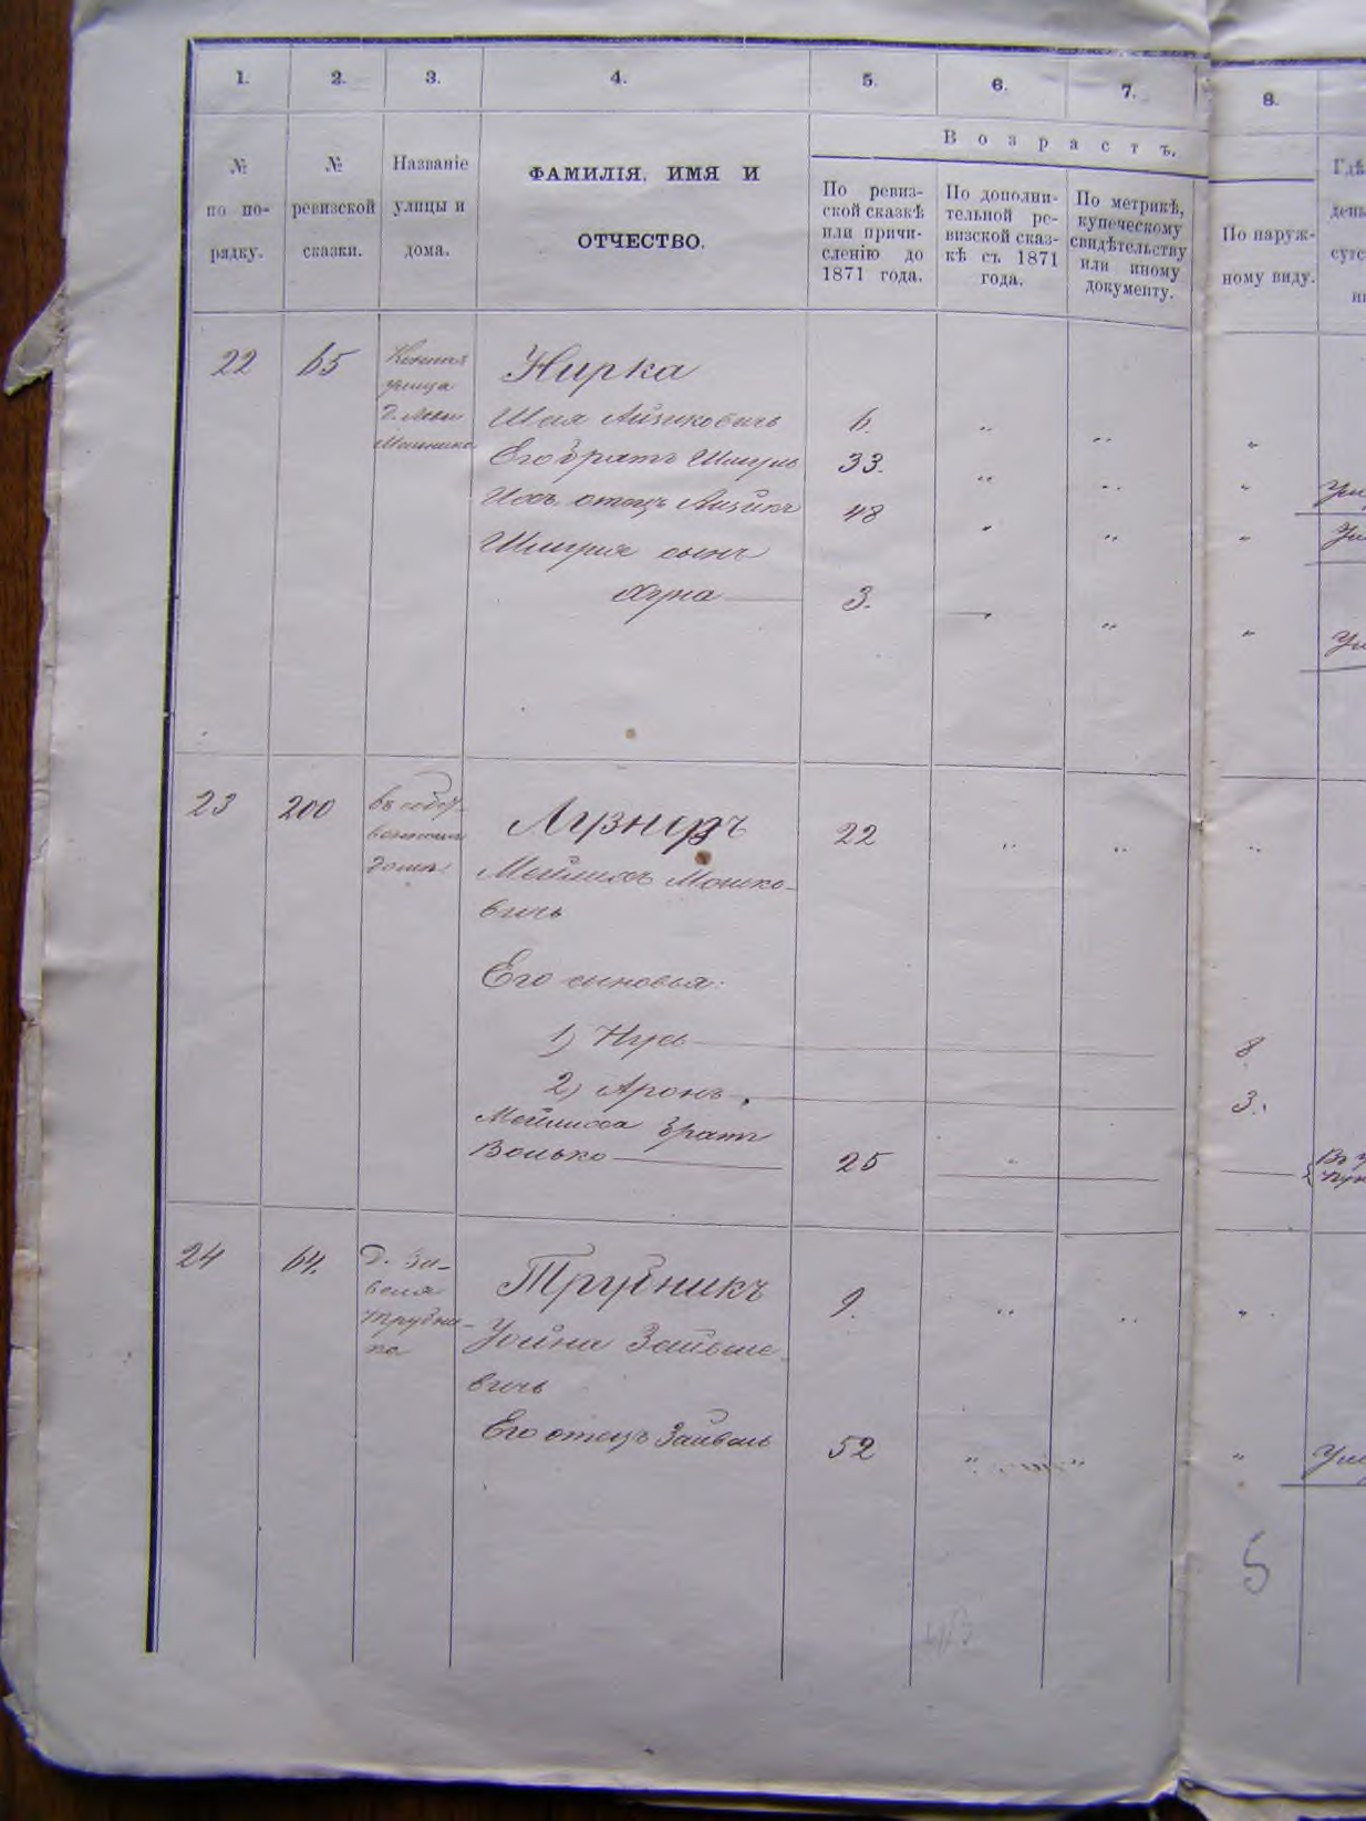 1. 2. 3. 4. 5. 6. 7. 8.
Возрастъ.
№ по по-
рядку.
№
ревизской
сказки.
Названіе
улицы и
дома.
ФАМИЛІЯ, ИМЯ И
ОТЧЕСТВО.
По ревиз-
ской сказкѣ
или причи-
сленію до
1871 года.
По дополни-
тельной ре-
визской сказ-
кѣ съ 1871
года.
По метрикѣ,
купеческому
свидѣтельству
или иному
документу.
По наруж-
ному виду.
Гдѣ
день
сутс
22 65
улица
Нирка
Шая Айзиковичъ 6.
Его братъ Шмуль 33.
Ихъ отецъ Айзикъ 48
Шмуля сынъ
Хуна 3.
23 200
въ собст-
венномъ
домѣ
Лузнеръ 22
Мейлихъ Мошко-
вичъ
Его сыновья:
1) Нусь 8
2) Аронъ 3.
Мейлиха братъ
Волько 25
24 64.
Д. Зай-
веля
Трубни-
ка
Трубникъ 9.
Хойна Зайвеле-
вичъ
Его отецъ Зайвель 52
5